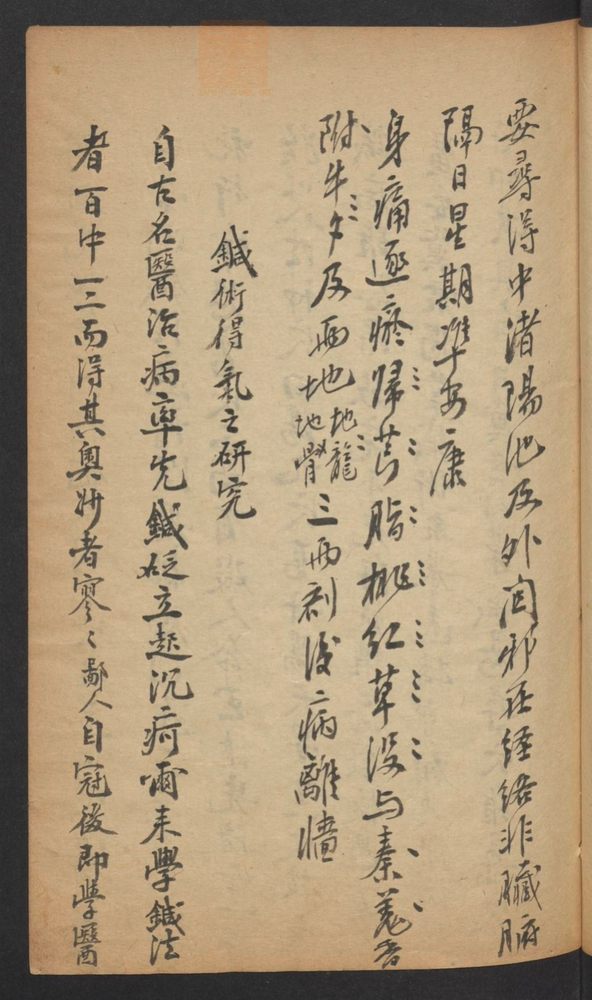 要尋得中渚陽池及外関邪在經絡非臟腑
隔日星期準安康
身痛逐瘀歸芎脂桃紅草沒与秦羌香
附牛夕及両地地龍地骨三両剤後病離牆
鍼術得氣之研究
自古名醫治病率先鍼砭立起沉疴爾来學鍼法
者百中一二而得其奧妙者寥々鄙人自冠後即學醫